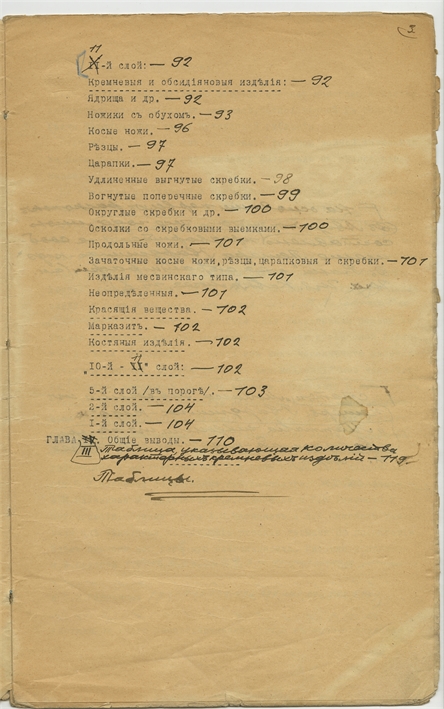 I
11
11-й слой: — 92
Кремневыя и обсидіяновыя издѣлія: — 92
Ядрища и др. — 92
Ножики съ обухомъ. — 93
Косые ножи. — 96
Рѣзцы. — 97
Царапки. — 97
Удлиненные выгнутые скребки. — 98
Вогнутые поперечные скребки. — 99
Округлые скребки и др. — 100
Осколки со скребковыми выемками. — 100
Продольные ножи. — 101
Зачаточные косые ножи, рѣзцы, царапковыя и скребки. — 101
Издѣлія месвинскаго типа. — 101
Неопредѣленныя. — 101
Красящія вещества. — 102
Марказитъ. — 102
Костяныя издѣлія. — 102
11
"10-й - XI" слой: — 102
5-й слой /въ порогѣ/. — 103
2-й слой. — 104
1-й слой. — 104
ГЛАВА Общіе выводы. — 110
III Таблица указивающая количества
характерныхъ кремневыхъ издѣлій — 119.
Таблицы.